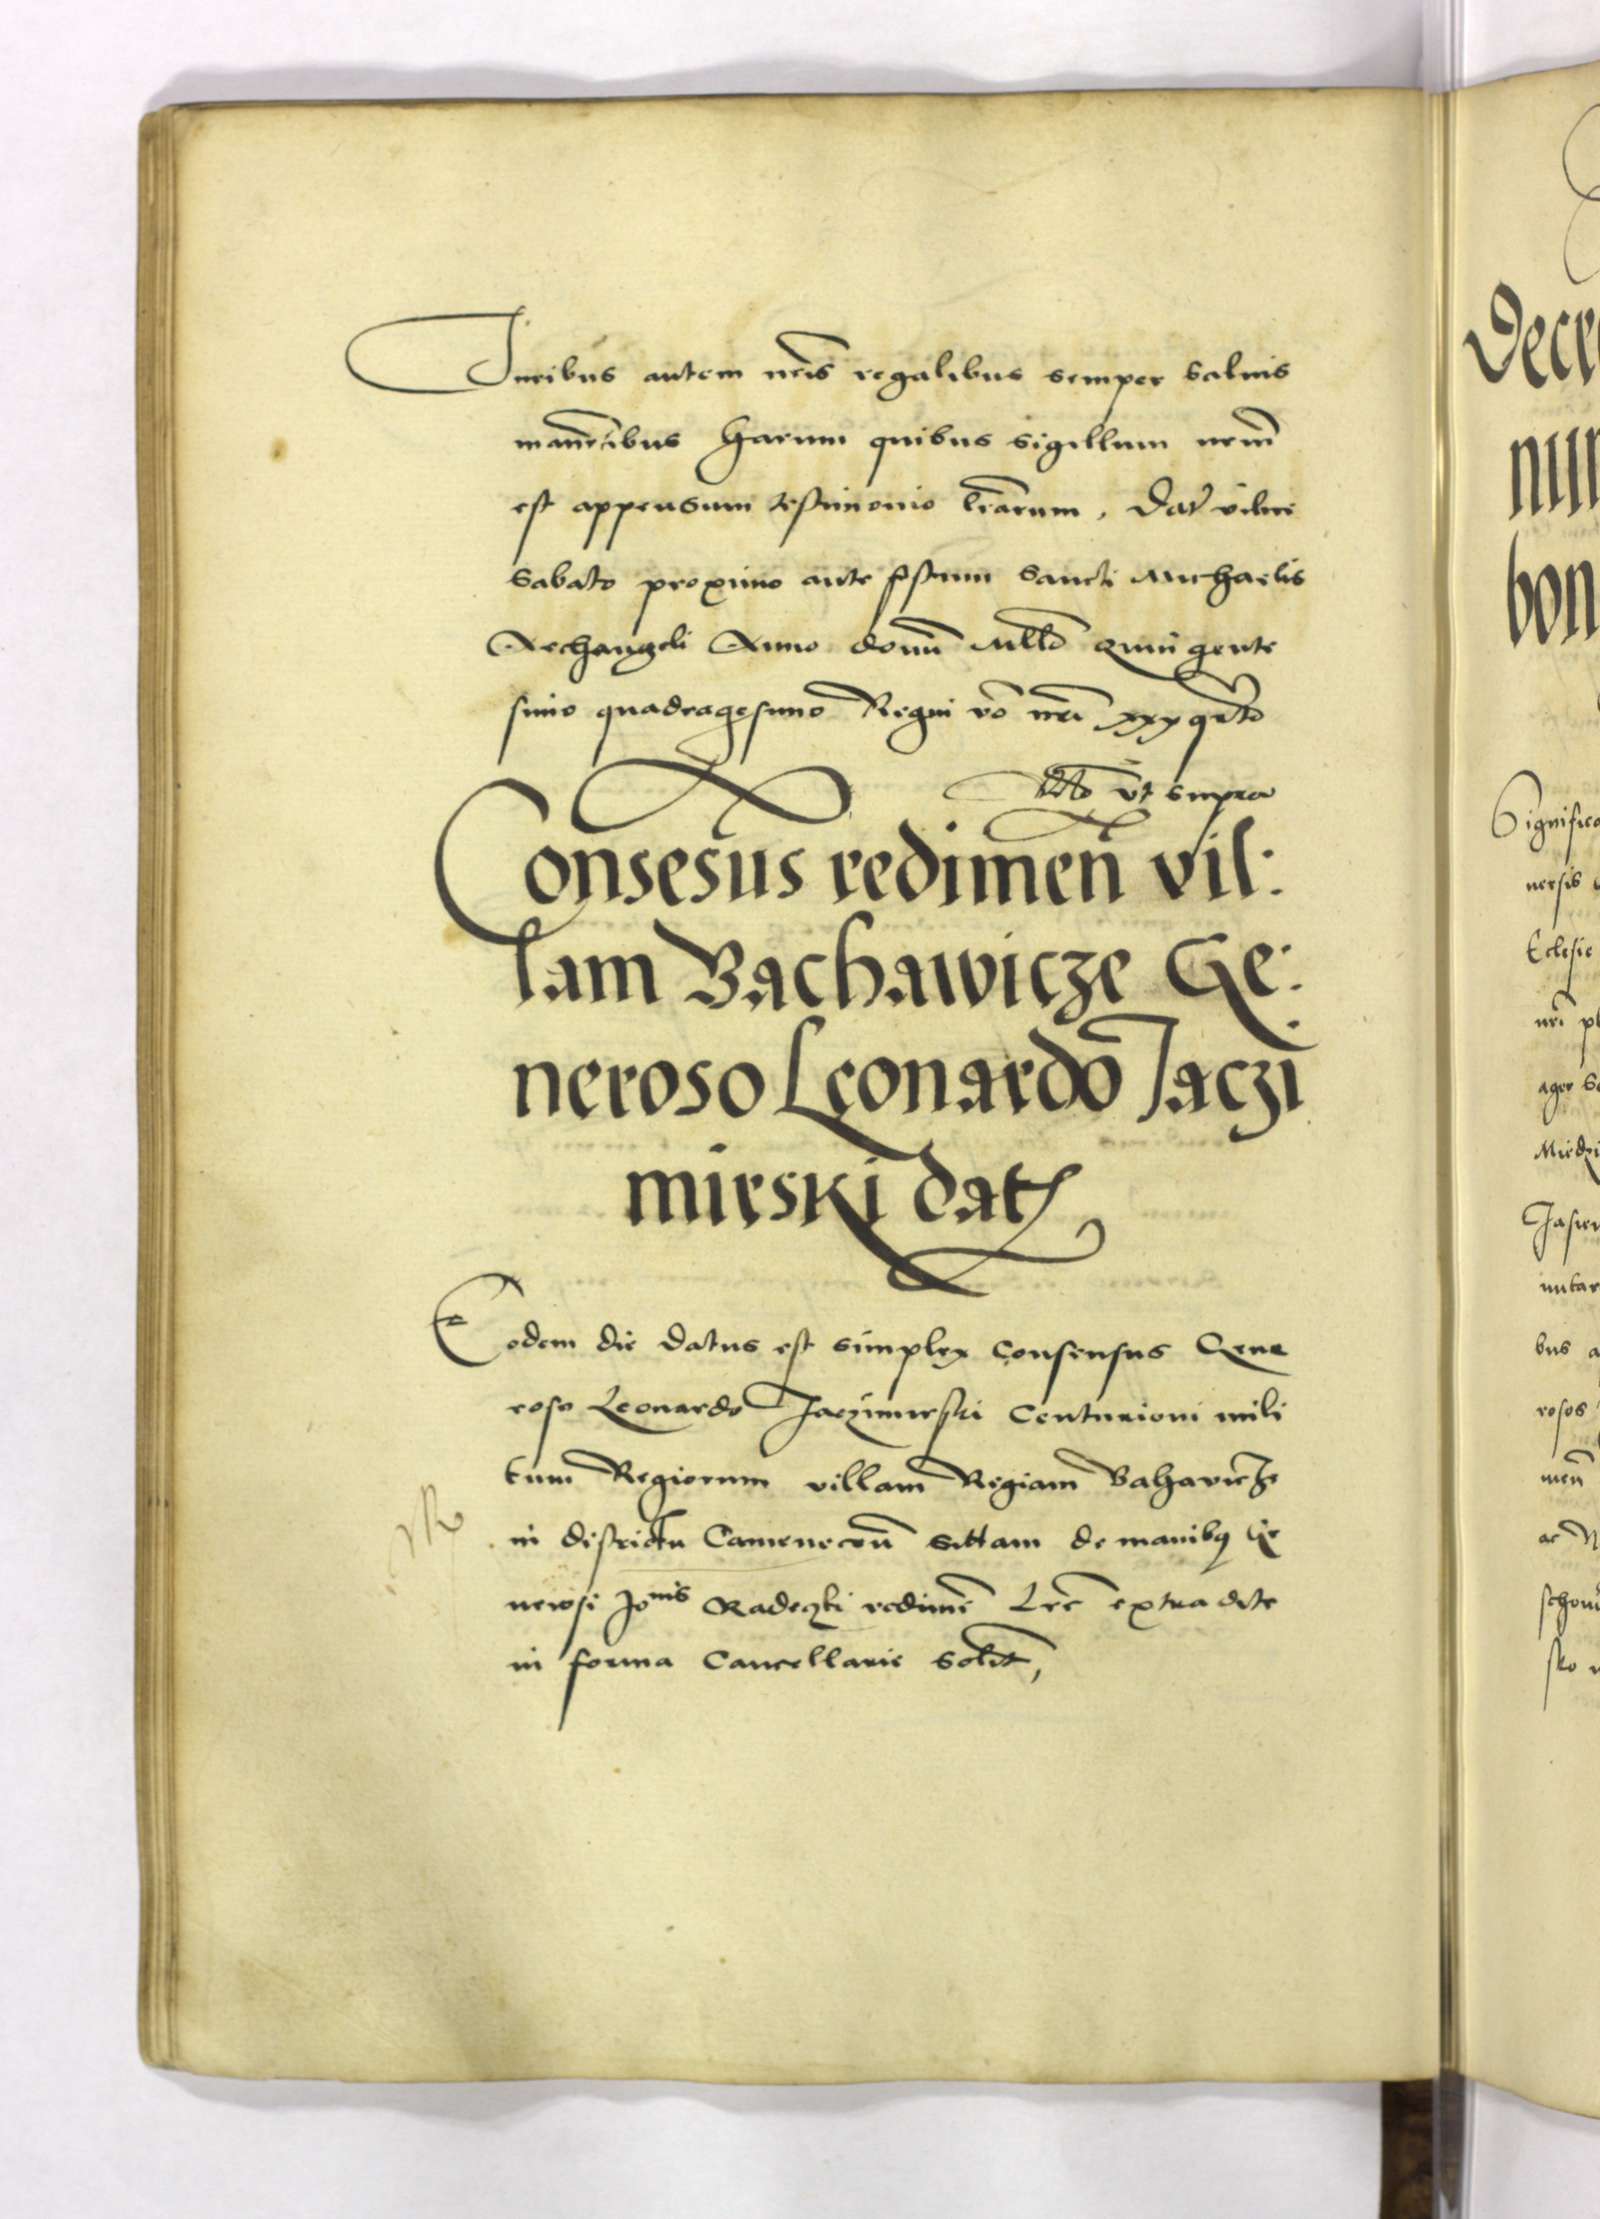 Iuribus autem nr̄is regalibus semper salvis
manen̄tibus Harum quibus sigillum nrm̄
est appensum testimonio lr̄arum, Dat vilne
Sabato proximo ante festum Sancti Michaelis
Archangeli Anno domī Mill̄o Quin gente
simo quadragesimo Regni vō nr̄i xxx qrto
ut supra
Consesūs redimen̄ vil:
lam Bachawicze Ge:
neroso Leonardo Jaczi
mirski dat
Eodem die datus est simplex Consensus Gene
roso Leonardo Jaczimirski Centurioni mili
tum Regiorum villam Regiam Bahavicze
in districtu Camenecen̄ sittam de manibus Ge
nerosi Jo^nis Radeczki redimen̄ Lr̄e extra dite
in forma Cancellarie Solit,
Decre
nun
bon
Significa
nersis
Eclesie
nr̄i pl
ager Se
Miedzi
Jasien
mitar
bus a
rosos
men̄
ac N
schow
sko